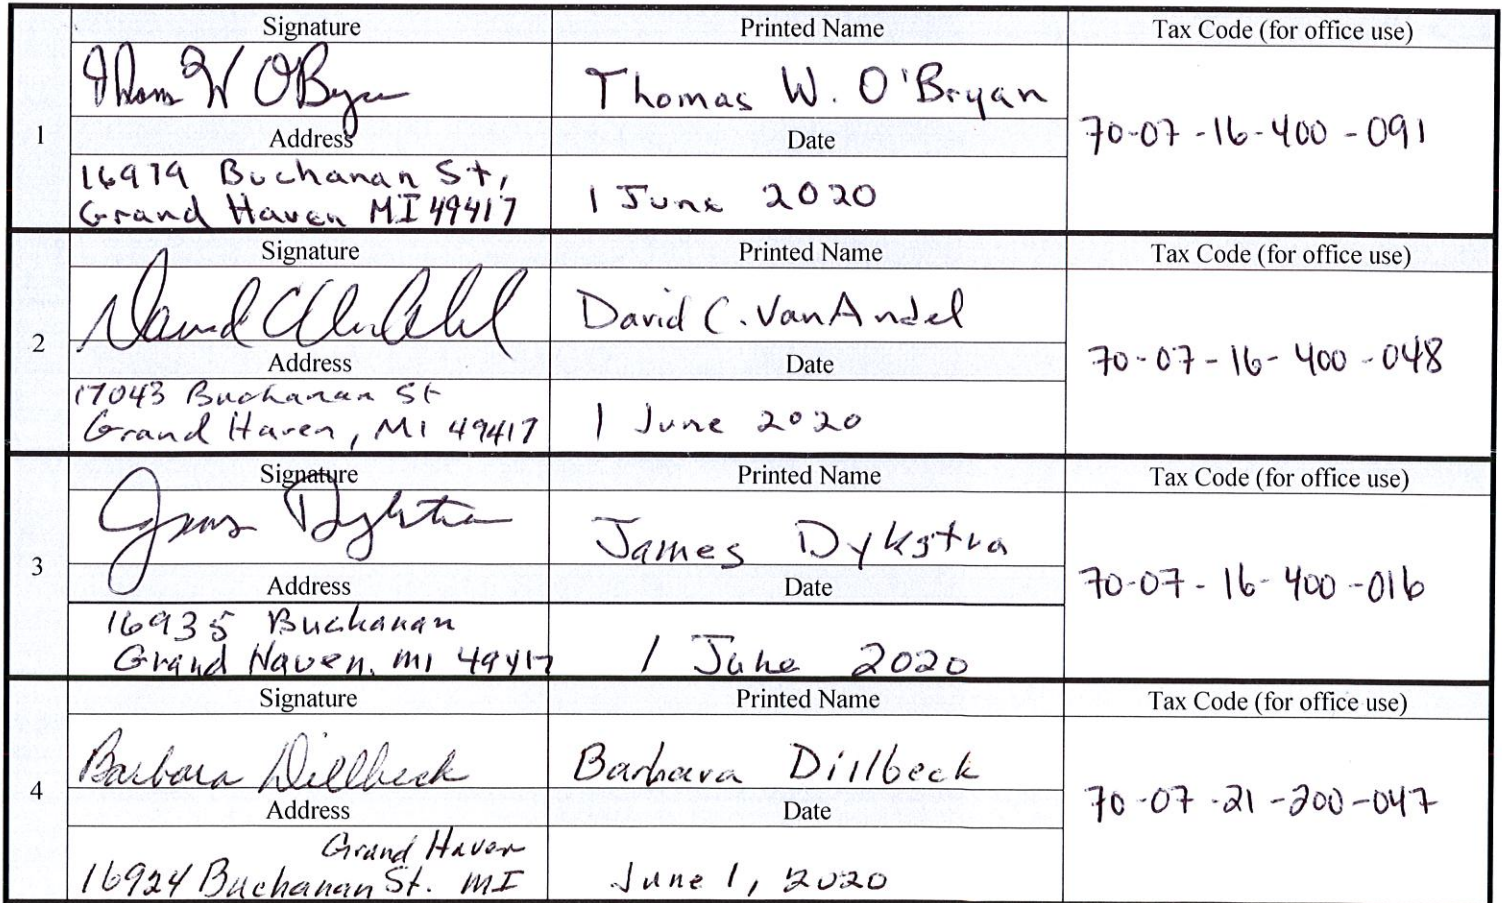 Signature Printed Name Tax Code (for office use)
Thomas W OBryan Thomas W. O'Bryan
1 Address Date 70-07-16-400-091
16979 Buchanan St,
Grand Haven MI 49417 1 June 2020
Signature Printed Name Tax Code (for office use)
David C VanAndel David C. VanAndel
2 Address Date 70-07-16-400-048
17043 Buchanan St
Grand Haven, MI 49417 1 June 2020
Signature Printed Name Tax Code (for office use)
James Dykstra James Dykstra
3 Address Date 70-07-16-400-016
16935 Buchanan
Grand Haven, MI 49417 1 June 2020
Signature Printed Name Tax Code (for office use)
Barbara Dillbeck Barbara Dillbeck
4 Address Date 70-07-21-200-047
Grand Haven
16924 Buchanan St. MI June 1, 2020